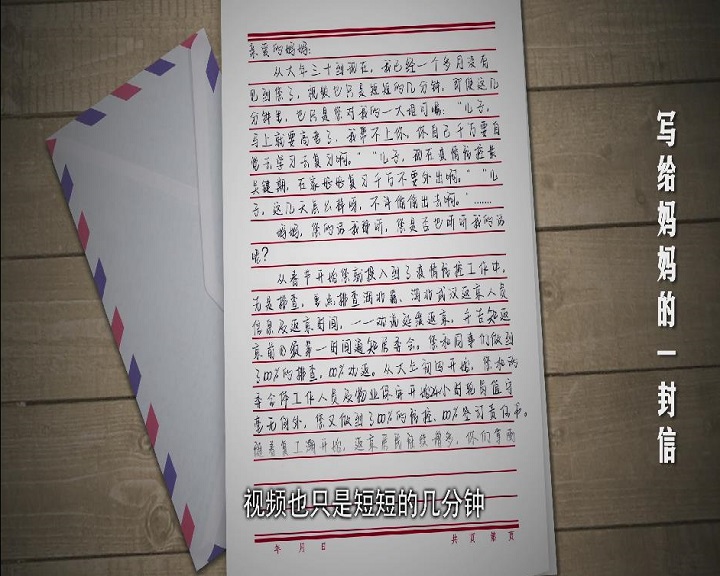 亲爱的妈妈：
从大年三十到现在，我已经一个多月没有
见到您了，视频也只是短短的几分钟，即使这几
分钟里，也只是您对我的一大堆叮嘱：“儿子，
马上就要高考了，我帮不上你，你自己千万要自
觉去学习去复习啊。”“儿子，现在疫情防控最
关键期，在家好好复习千万不要外出啊。”“儿
子，这几天怎么样呀，不许偷偷出去啊。”……
妈妈，您的话我都听，您是否也听听我的话
呢？
从春节开始您就投入到了疫情防控工作中，
先是排查，重点排查湖北籍、湖北武汉返京人员
信息及返京时间，一一劝说延缓返京，并告知返
京前必须第一时间通知居委会。您和同事们做到
了100%的排查，100%劝返。从大年初四开始，您和居
委会体工作人员及物业保安开始24小时轮岗值守
毫无例外，您又做到了100%的防控，100%坚守责任岗。
随着复工潮开始，返京居民陆续增多，你们家面
年 月 日
共 页 第 页
写给妈妈的一封信
视频也只是短短的几分钟